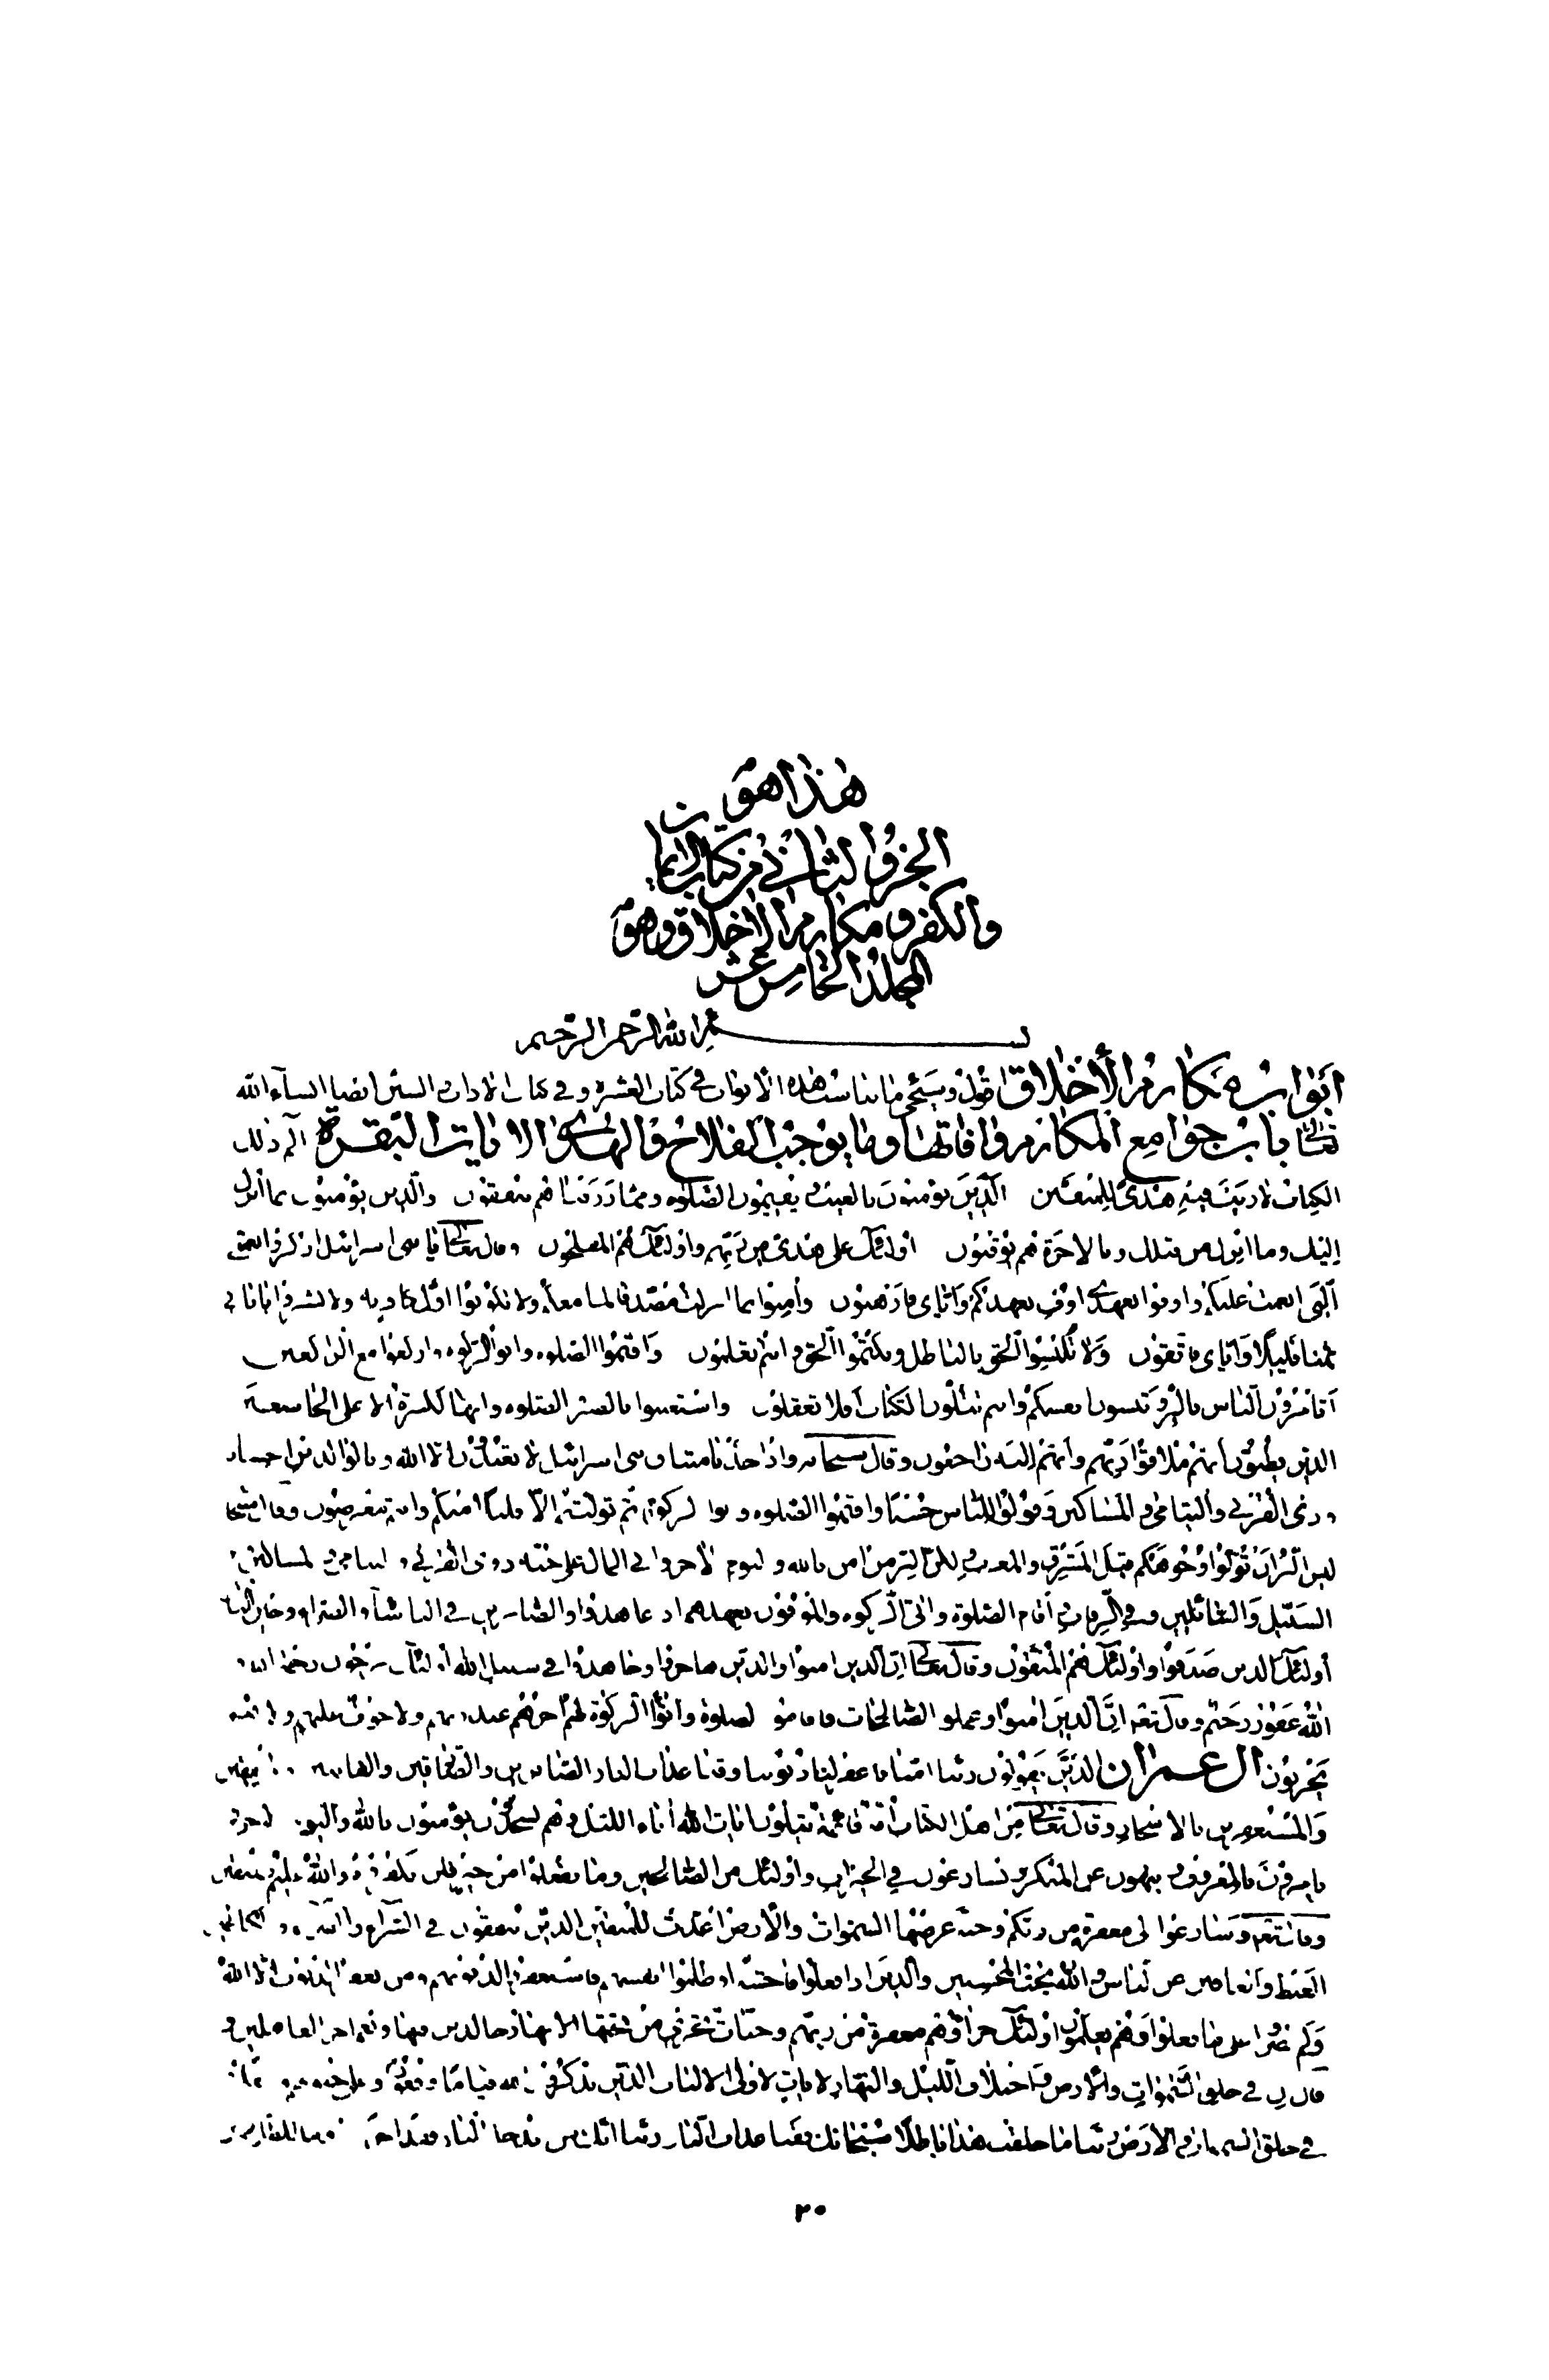 هذا هو
الجزؤ الثاني من كتاب الايمان
والكفر ومكارم الاخلاق وهو
المجلد الخامس عشر
بسم الله الرحمن الرحيم
ابواب مكارم الأخلاق اقول وسيجئ ما يناسب هذه الابواب في كتاب العشرة وفي كتاب الاداب والسنن ايضا انشآء الله
تعالى باب جوامع المكارم وافاتها وما يوجب الفلاح والهدى الايات البقرة الم ذلك
الكتاب لا ريب فيه هدى للمتقين الذين يؤمنون بالغيب ويقيمون الصلوة ومما رزقناهم ينفقون والذين يؤمنون بما أنزل
إليك وما انزل من قبلك وبالاخرة هم يوقنون اولئك على هدى من ربهم واولئك هم المفلحون وقال تعالى يا بنى اسرائيل اذكروا نعمتى
الّتى انعمت عليكم واوفوا بعهدى اوف بعهدكم وايّاى فارهبون وآمنوا بما انزلت مصدقا لما معكم ولا تكونوا اوّل كافر به ولا تشتروا باياتى
ثمنا قليلا واياى فاتقون ولا تلبسوا الحق بالباطل وتكتموا الحق وانتم تعلمون واقيموا الصلوة واتوا الزكوة واركعوا مع الراكعين
أتأمرون الناس بالبر وتنسون انفسكم وانتم تتلون الكتاب أفلا تعقلون واستعينوا بالصبر والصلوة وانها لكبيرة الا على الخاشعين
الذين يظنون أنهم ملاقوا ربهم وأنهم إليه راجعون وقال سبحانه واذ اخذنا ميثاق بنى اسرائيل لا تعبدون الا الله وبالوالدين احسانا
وذى القربى واليتامى والمساكين وقولوا للناس حسنا واقيموا الصلوة وآتوا الزكوة ثم توليتم إلا قليلا منكم وانتم معرضون وقال سبحانه
ليس البر أن تولوا وجوهكم قبل المشرق والمغرب ولكن البر من امن بالله واليوم الآخر
السبيل والسائلين وفى الرقاب وأقام الصلوة واتى الزكوة والموفون بعهدهم اذا عاهدوا والصابرين في الباسآء والضراء وحين البأس
أولئك الذين صدقوا واولئك هم المتقون وقال تعالى إنّ الذين امنوا والذين هاجروا وجاهدوا في سبيل الله اولئك يرجون رحمة الله و
الله غفور رحيم وقال تعالى إنّ الذين امنوا وعملوا الصالحات واقاموا الصلوة وآتوا الزكوة لهم اجرهم عند ربهم ولا خوف عليهم ولا هم
يحزنون ال عمران الذين يقولون ربنا اننا امنا فاغفر لنا ذنوبنا وقنا عذاب النار الصابرين والصادقين والقانتين والمنفقين
والمستغفرين بالاسحار وقال تعالى من اهل الكتاب امة قائمة يتلون ايات الله أناء الليل وهم يسجدون يؤمنون بالله واليوم الاخر و
يامرون بالمعروف وينهون عن المنكر ويسارعون في الخيرات واولئك من الصالحين وما يفعلوا من خير فلن يكفروه والله عليم بالمتقين
وقال تعالى وسارعوا الى مغفرة من ربكم وجنة عرضها السموات والأرض اعدت للمتقين الذين ينفقون في السرآء والضراء والكاظمين
الغيظ والعافين عن الناس والله يحب المحسنين والذين اذا فعلوا فاحشة او ظلموا انفسهم فاستغفروا لذنوبهم ومن يغفر الذنوب الا الله
ولم يصروا على ما فعلوا وهم يعلمون اولئك جزاؤهم مغفرة من ربهم وجنات تجرى من تحتها الانهار خالدين فيها ونعم اجر العاملين و
قال ان في خلق السموات والأرض واختلاف الليل والنهار لايات لاولى الالباب الذين يذكرون الله قياما وقعودا وعلى جنوبهم
في خلق السموات والارض ربنا ما خلقت هذا باطلا سبحانك فقنا عذاب النار ربنا انك من تدخل النار فقد اخزيته وما للظالمين
٢٠